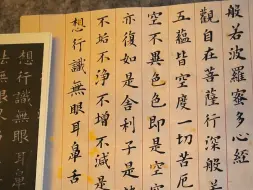 般若波羅蜜多心經
觀自在菩薩行深般
五蘊皆空度一切苦厄
空不異色色即是空
亦復如是舍利子是
不垢不淨不增不減是
想行識無眼耳鼻舌
想行識無眼耳鼻舌